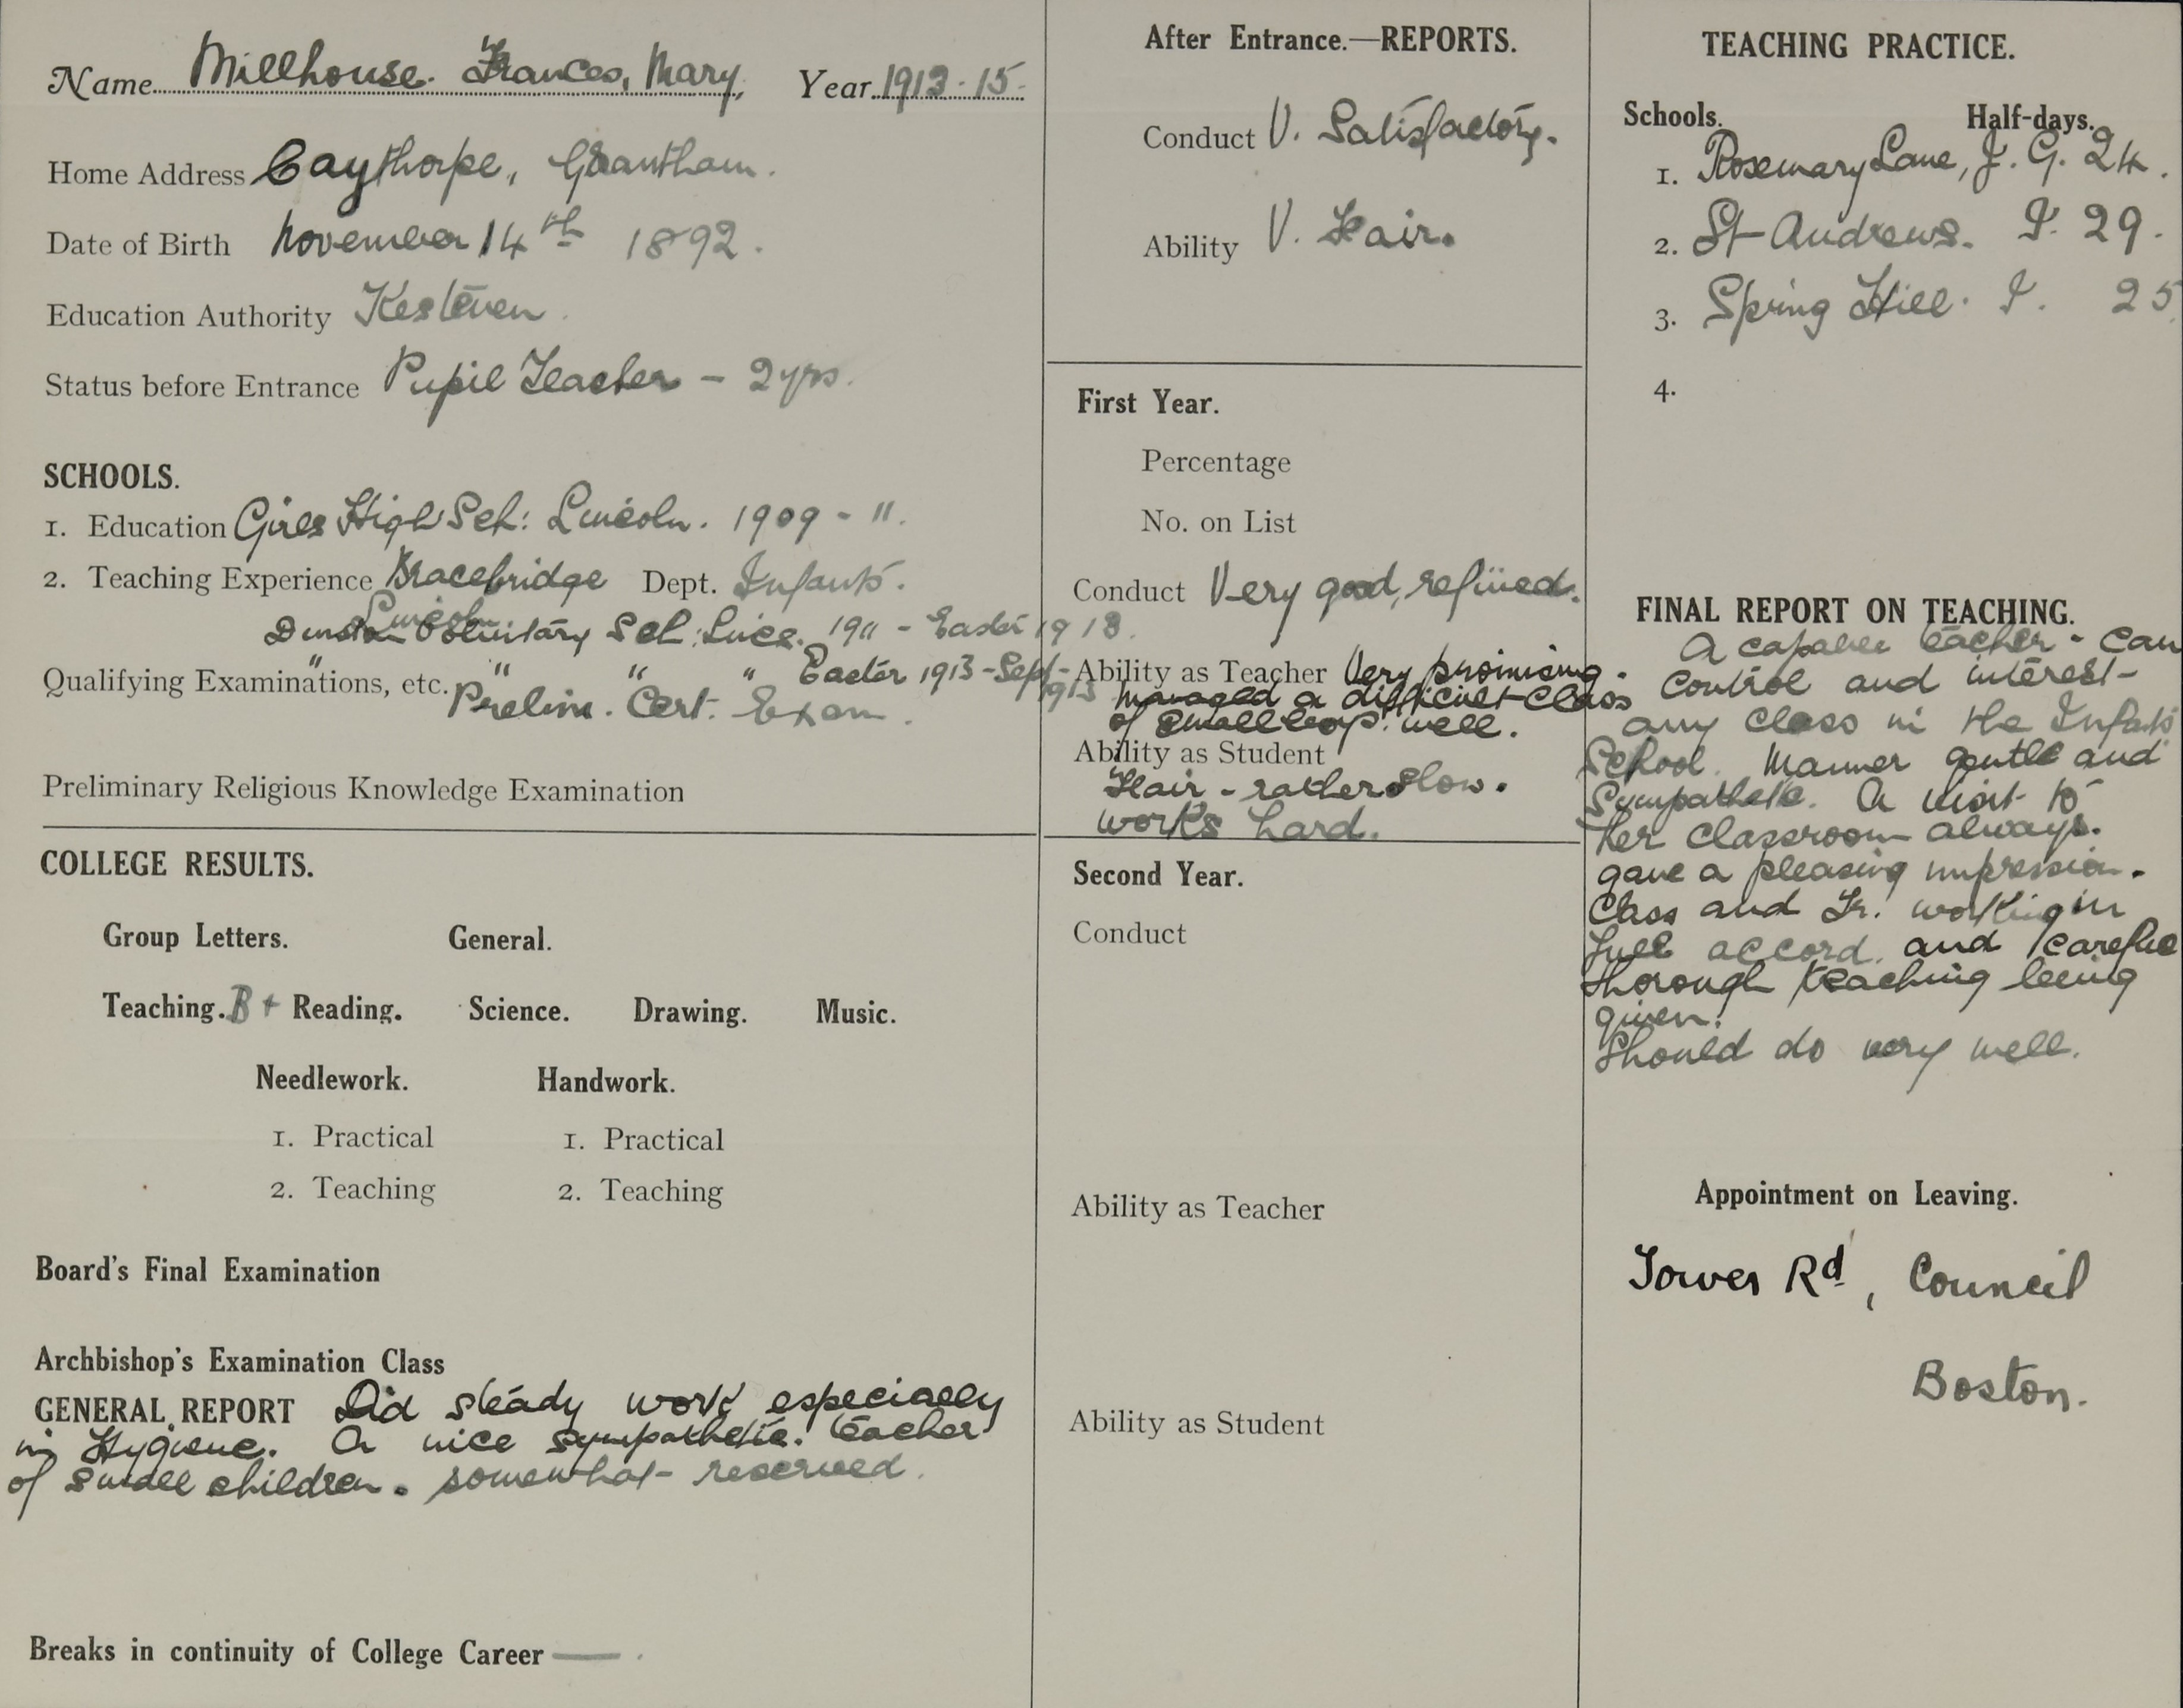 Name Millhouse. Frances, Mary, Year 1913-15.
Home Address Caythorpe, Grantham.
Date of Birth November 14th 1892.
Education Authority Kesteven.
Status before Entrance Pupil Teacher - 2yrs.
SCHOOLS.
1. Education Girls High Sch: Lincoln. 1909 - 11.
2. Teaching Experience Bracebridge Dept. Infants.
Lincoln
Dunston Voluntary Sch: Lincs. 1911 - Easter 1913.
" " " " Easter 1913 - Sept 1913
Qualifying Examinations, etc. Prelim. Cert. Exam.
Preliminary Religious Knowledge Examination
COLLEGE RESULTS.
Group Letters. General.
Teaching. B+ Reading. Science. Drawing. Music.
Needlework. Handwork.
1. Practical 1. Practical
2. Teaching 2. Teaching
Board's Final Examination
Archbishop's Examination Class
GENERAL REPORT Did steady work especially
in Hygiene. A nice sympathetic teacher
of small children. somewhat reserved.
Breaks in continuity of College Career — .
After Entrance.—REPORTS.
Conduct V. Satisfactory.
Ability V. Fair.
First Year.
Percentage
No. on List
Conduct Very good, refined.
Ability as Teacher Very promising.
Managed a difficult class
of small boys well.
Ability as Student
Fair - rather slow.
works hard.
Second Year.
Conduct
Ability as Teacher
Ability as Student
TEACHING PRACTICE.
Schools. Half-days.
1. Rosemary Lane, J. G. 24.
2. St Andrews. I. 29.
3. Spring Hill. I. 25
4.
FINAL REPORT ON TEACHING.
A capable teacher - can
control and interest
any class in the Infants
School. Manner gentle and
sympathetic. A visit to
her classroom always.
gave a pleasing impression.
Class and Tr. working in
full accord. and careful
thorough teaching being
given.
Should do very well.
Appointment on Leaving.
Tower Rd, Council
Boston.